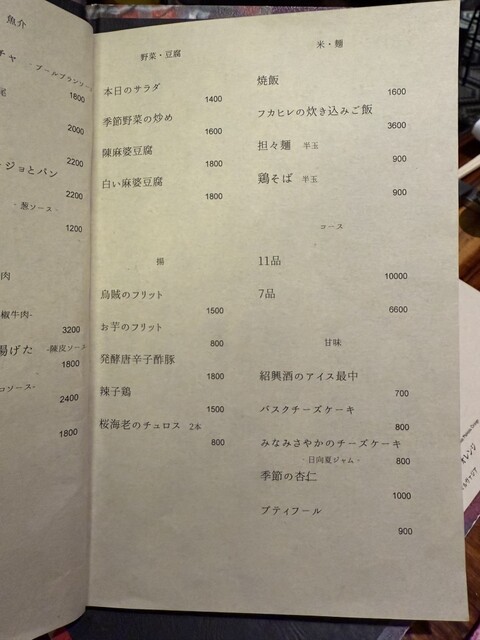 魚介
ブールブランソース
1800
2000
2200
ージョとパン
2200
葱ソース -
1200
肉
椒牛肉-
3200
揚げた -陳皮ソース
1800
コソース-
2400
1800
野菜・豆腐
本日のサラダ
1400
季節野菜の炒め
1600
陳麻婆豆腐
1800
白い麻婆豆腐
1800
揚
烏賊のフリット
1500
お芋のフリット
800
発酵唐辛子酢豚
1800
辣子鶏
1500
桜海老のチュロス 2本
800
米・麺
焼飯
1600
フカヒレの炊き込みご飯
3600
担々麺 半玉
900
鶏そば 半玉
900
コース
11品
10000
7品
6600
甘味
紹興酒のアイス最中
700
バスクチーズケーキ
800
みなみさやかのチーズケーキ
- 日向夏ジャム - 800
季節の杏仁
1000
プティフール
900